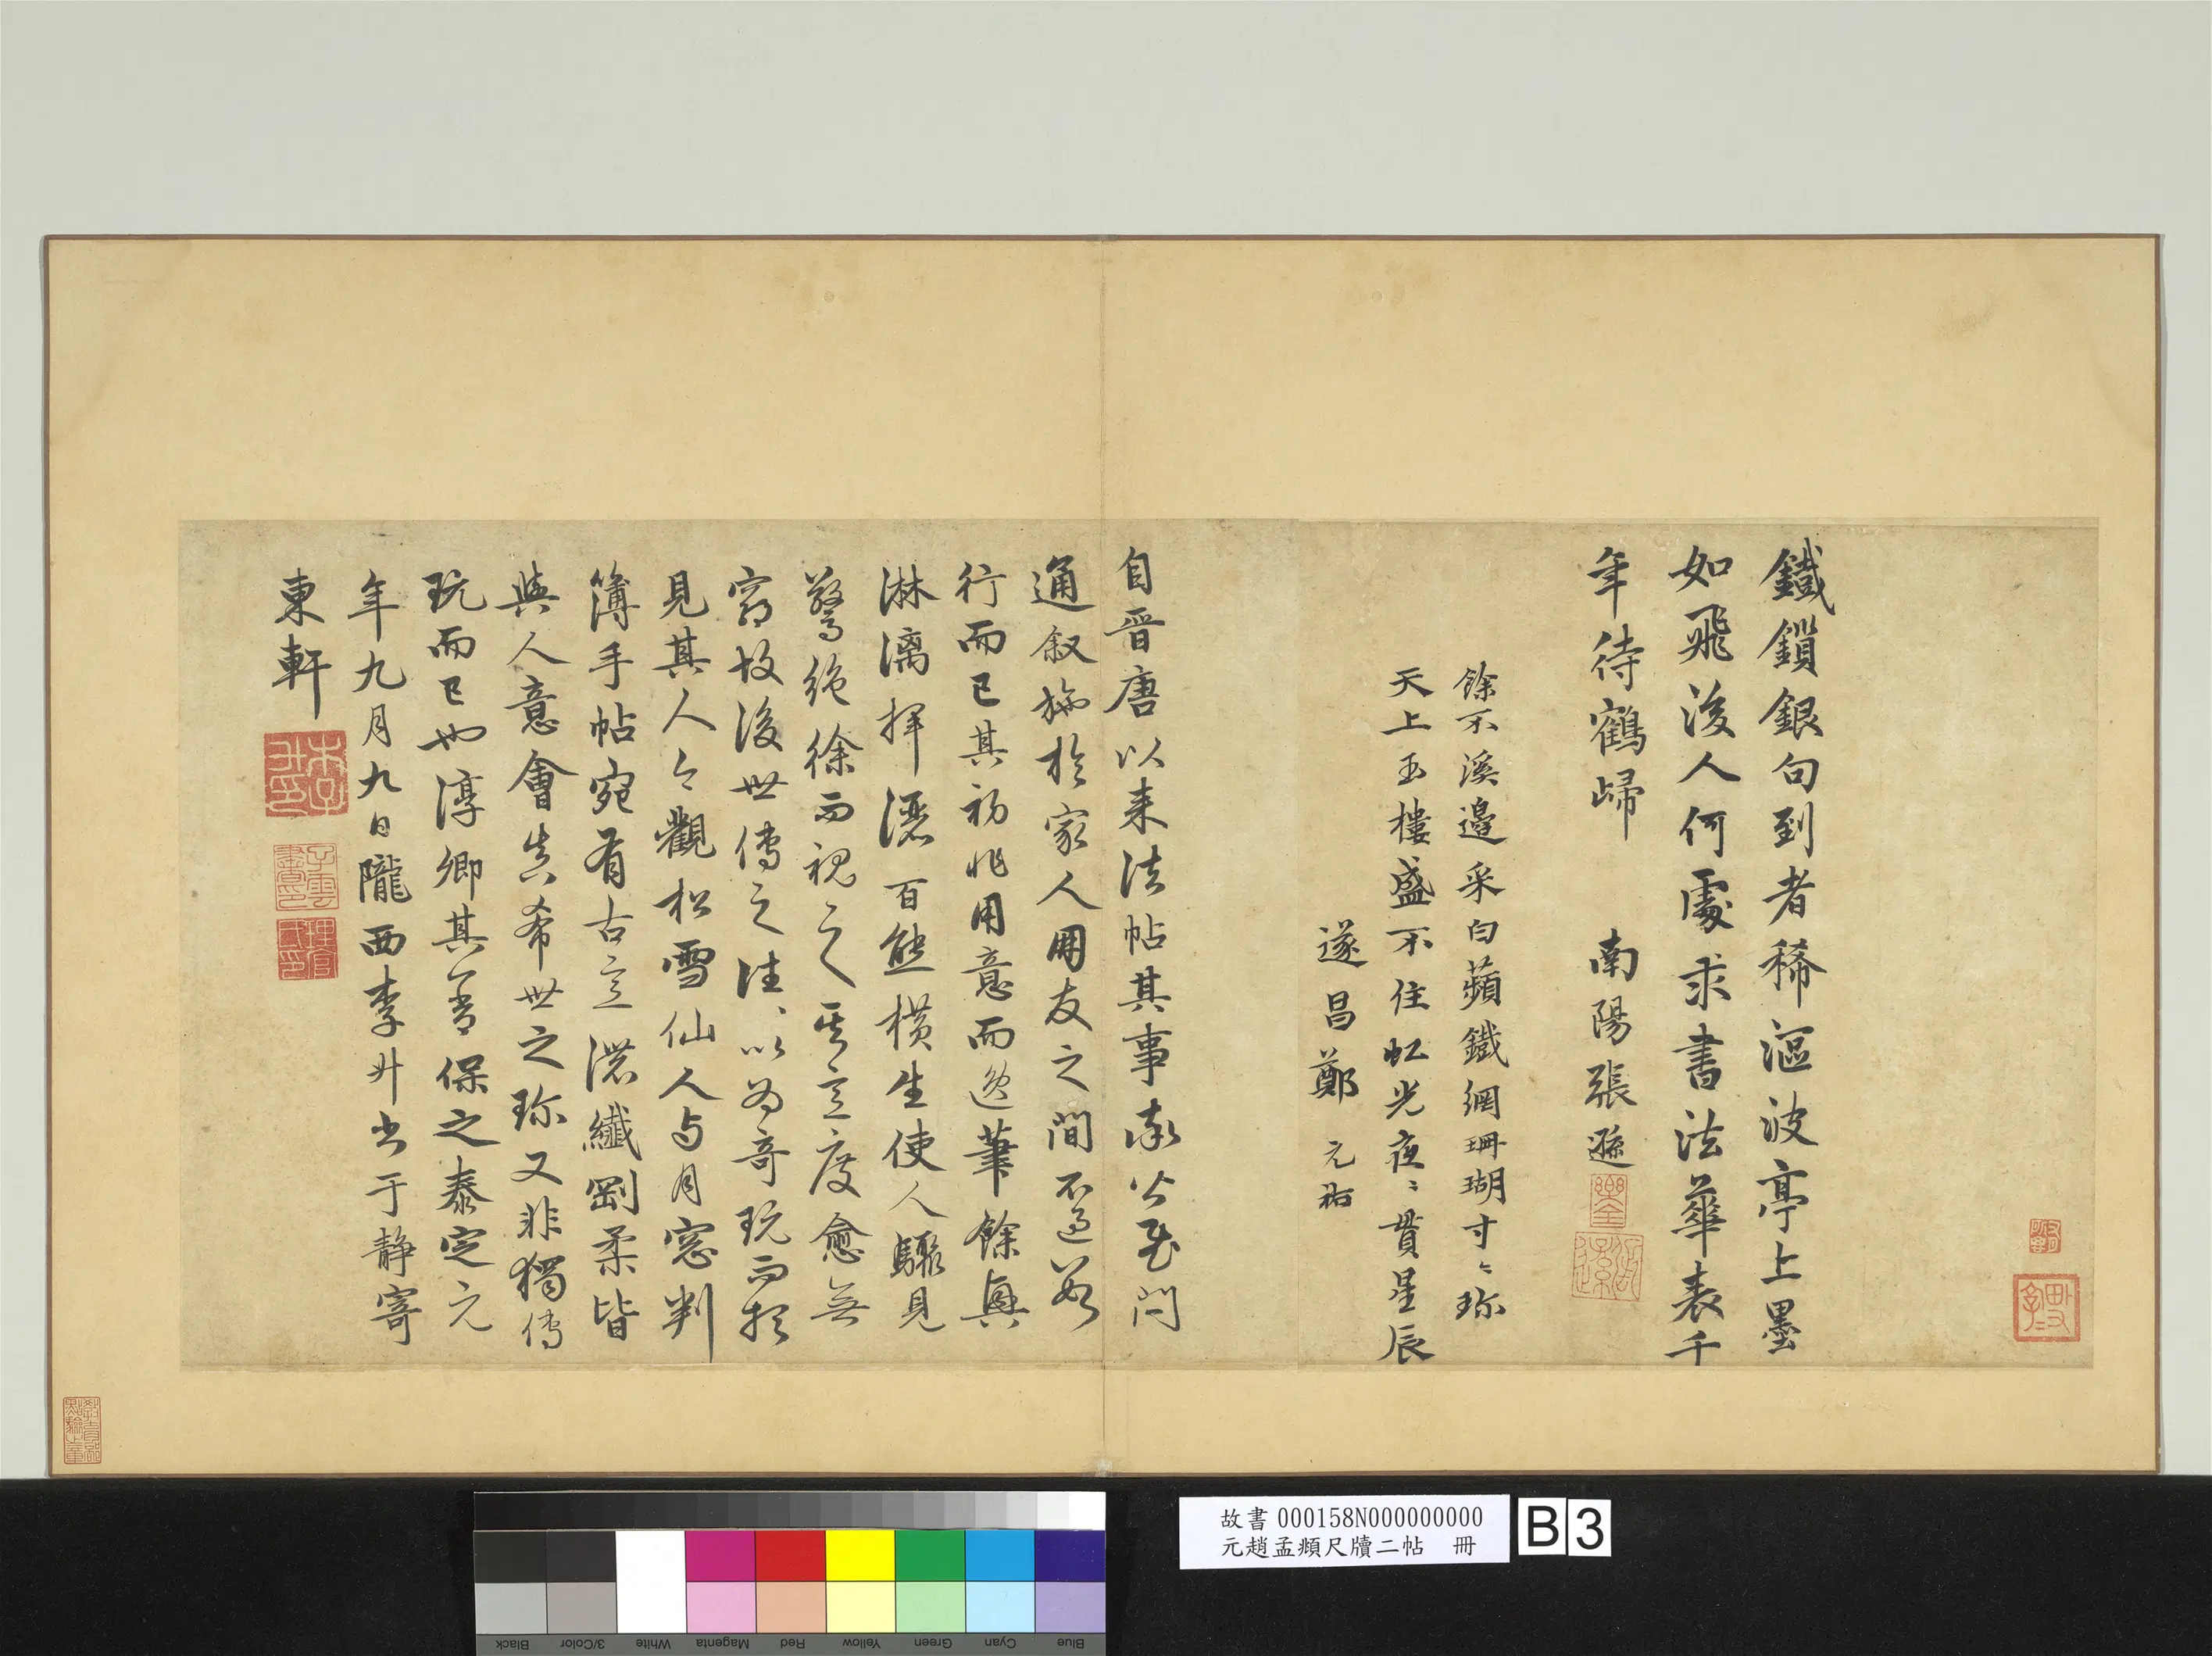 鐵鎖銀句到者稀漚波亭上墨
如飛後人何處求書法華表千
年待鶴歸
南陽張遜
餘不溪邊采白蘋鐵網珊瑚寸〻珎
天上玉樓盛不住虹光夜〻貫星辰
遂昌鄭元祐
自晉唐以来法帖其事率以吊問
通敘施於家人朋友之間不過數
行而已其初非用意而逸筆餘興
淋漓揮灑百態橫生使人驟見
驚絶徐而視之其意度愈無
窮故後世傳之往〻以為奇玩而想
見其人今觀松雪仙人与月窓判
簿手帖宛有古意濃纖剛柔皆
與人意會真希世之珎又非獨傳
玩而已也淳卿其善保之泰定元
年九月九日隴西李升書于静寄
東軒
故書 000158N000000000
元趙孟頫尺牘二帖 冊
B 3
Black
3/Color
White
Magenta
Red
Yellow
Green
Cyan
Blue